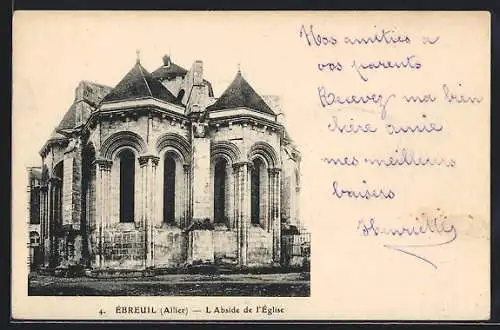 Nos amitiés à
vos parents
Recevez ma bien
chère amie
mes meilleurs
baisers
Henriette
4. ÉBREUIL (Allier) — L'Abside de l'Église